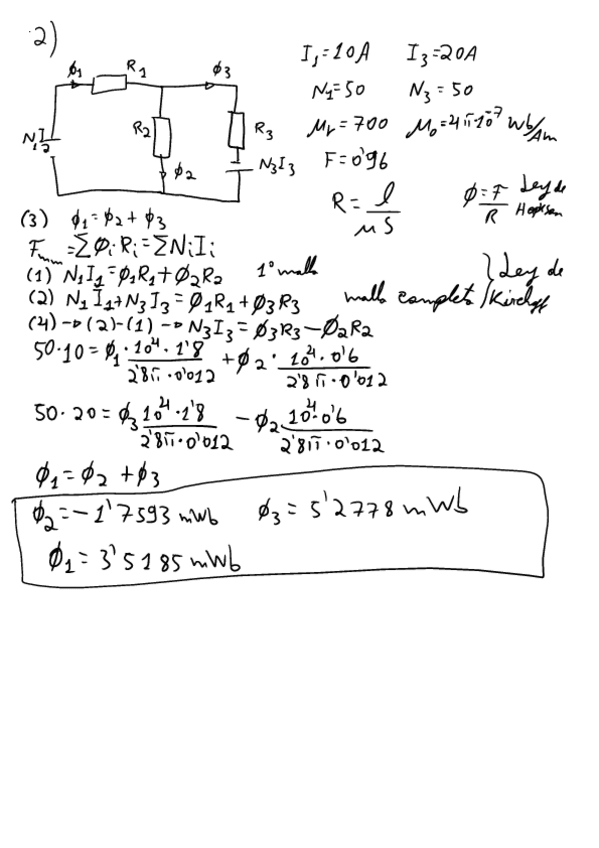 2)
ϕ1 R1 ϕ3 I1=10A I3=20A
N1=50 N3=50
R2 R3 Mr=700 Mo=4π·10^-7 Wb/Am
N1I1 ϕ2 N3I3 F=0'96
R=l/μS ϕ=F/R Ley de Hopkson
(3) ϕ1=ϕ2+ϕ3
Fmm=ΣϕiRi=ΣNiIi
(1) N1I1=ϕ1R1+ϕ2R2 1º malla
(2) N1I1+N3I3=ϕ1R1+ϕ3R3 malla completa } Ley de Kirchoff
(4)→(2)-(1)→N3I3=ϕ3R3-ϕ2R2
50·10=ϕ1·10^4·1'8/2'8π·0'012+ϕ2·10^4·0'6/2'8π·0'012
50·20=ϕ3 10^4·1'8/2'8π·0'012-ϕ2 10^4·0'6/2'8π·0'012
ϕ1=ϕ2+ϕ3
ϕ2=-1'7593 mWb ϕ3=5'2778 mWb
ϕ1=3'5185 mWb